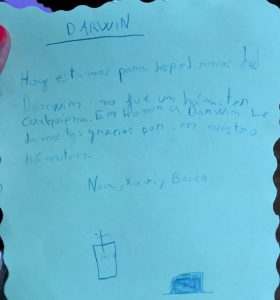 DARWIN
Hoy estamos para despedirnos del
Darwin no fue un hámster
cualquiera. En honor a Darwin le
damos las gracias por ser nuestro
hámster.
Noa, Xavi, Bosco